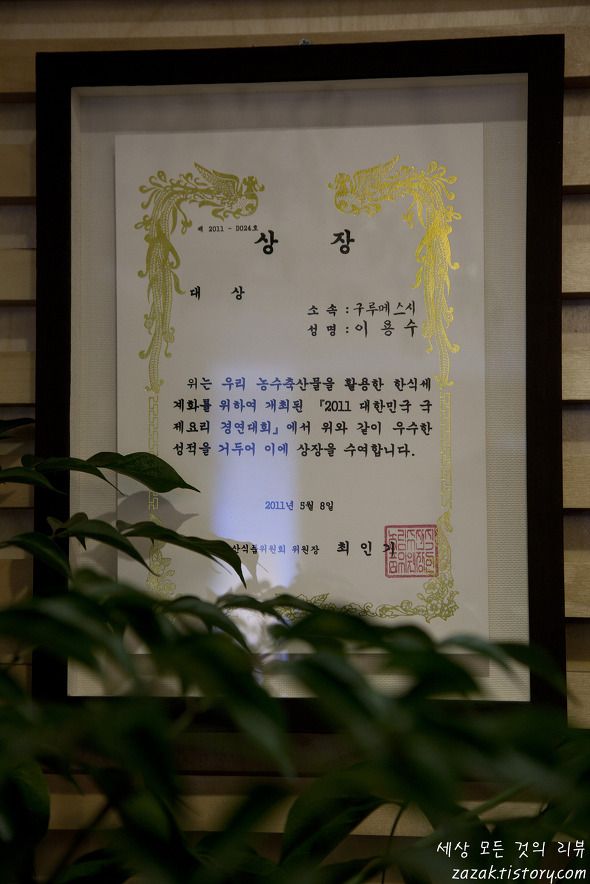 제 2011 - D024호
상 장
대 상
소 속 : 구루메스시
성 명 : 이 용 수
위는 우리 농수축산물을 활용한 한식세
계화를 위하여 개최된 『2011 대한민국 국
제요리 경연대회』에서 위와 같이 우수한
성적을 거두어 이에 상장을 수여합니다.
2011년 5월 8일
산식품위원회 위원장 최 인 기
세상 모든 것의 리뷰
zazaktistory.com